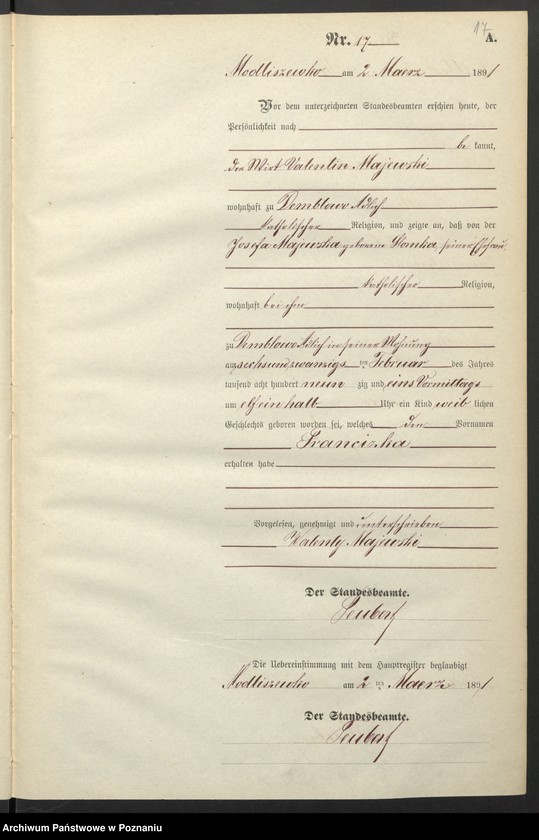 17
Nr. 17 A.
Modliszewko am 2 Maerz 1891
Vor dem unterzeichneten Standesbeamten erschien heute, der
Persönlichkeit nach
be kannt,
der Wirt Valentin Majewski
wohnhaft zu Demblowo Adlich
katholischer Religion, und zeigte an, daß von der
Josefa Majewska geborene Slomka, seiner Ehefrau
katholischer Religion,
wohnhaft bei ihm
zu Demblowo Adlich in seiner Wohnung
am sechsundzwanzigs ten Februar des Jahres
tausend acht hundert neun zig und eins Vormittags
um elfeinhalb Uhr ein Kind weib lichen
Geschlechts geboren worden sei, welches den Vornamen
Franciszka
erhalten habe
Vorgelesen, genehmigt und unterschrieben
Walenty Majewski
Der Standesbeamte.
Die Uebereinstimmung mit dem Hauptregister beglaubigt
Modliszewko am 2 ten Maerz 1891
Der Standesbeamte.
Archiwum Państwowe w Poznaniu